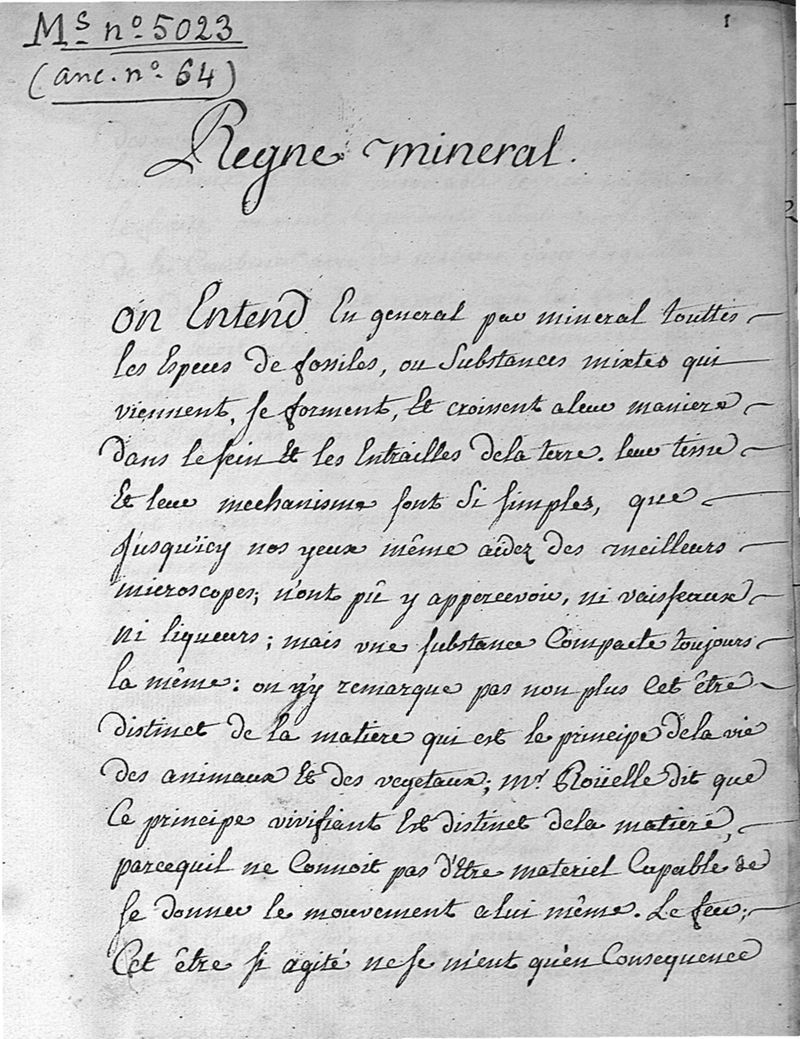 Ms no 5023
(anc. no. 64)
1
Regne mineral.
on Entend En general par mineral touttes
les Especes de fossiles, ou Substances mixtes qui
viennent, se forment, Et croissent a leur maniere
dans le sein Et les Entrailles dela terre. leur tissu
Et leur mechanisme sont Si simples, que
Jusqu'icy nos yeux même aidez des meilleurs
microscopes; n'ont pû y appercevoir, ni vaisseaux
ni liqueurs; mais vne substance Compacte toujours
la même: on n'y remarque pas non plus Cet être
distinct de la matiere qui est le principe dela vie
des animaux Et des vegetaux; Mr. Roüelle dit que
Ce principe vivifiant Est distinct dela matiere,
parcequil ne Connoit pas d'Etre materiel Capable de
se donner le mouvement a lui même. Le feu,
Cet être si agité ne se meut qu'en Consequence